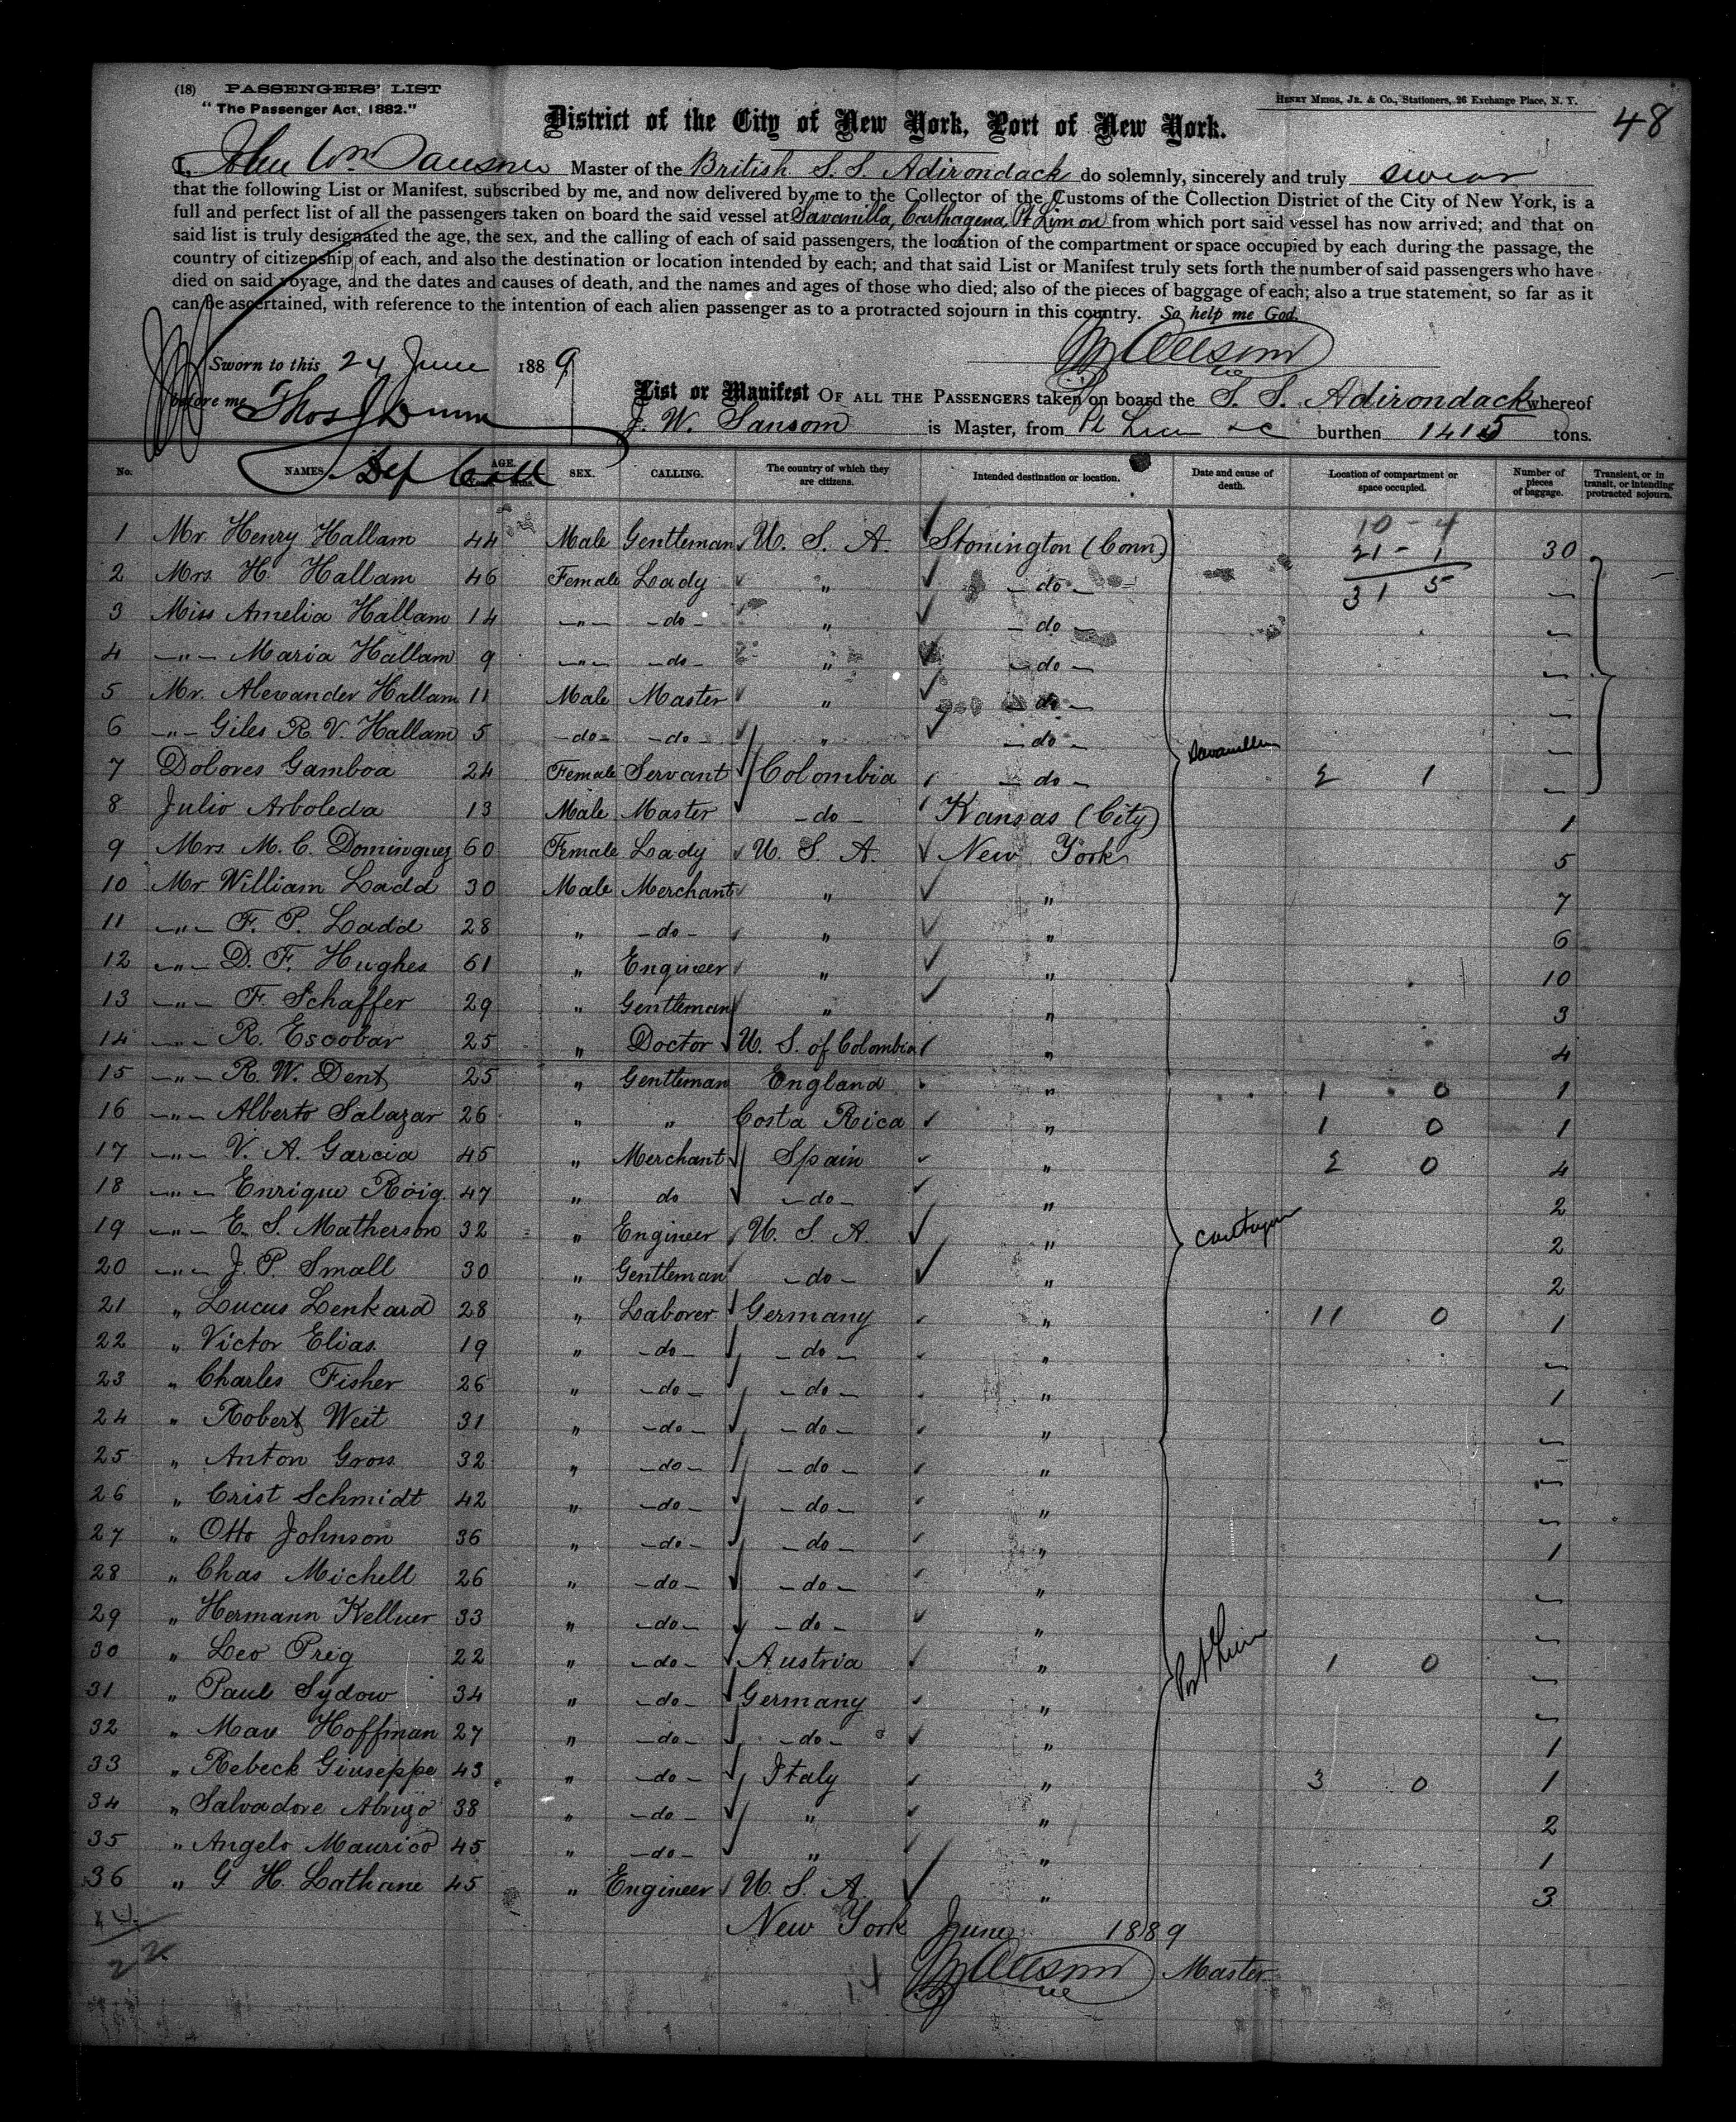 (18) PASSENGERS' LIST
"The Passenger Act, 1882."
HENRY MEIGS, JR. & CO., Stationers, 26 Exchange Place, N. Y.
48
District of the City of New York, Port of New York.
I, John Wm Sansom Master of the British S. S. Adirondack do solemnly, sincerely and truly swear
that the following List or Manifest, subscribed by me, and now delivered by me to the Collector of the Customs of the Collection District of the City of New York, is a
full and perfect list of all the passengers taken on board the said vessel at Savanilla, Carthagena, Pt Limon from which port said vessel has now arrived; and that on
said list is truly designated the age, the sex, and the calling of each of said passengers, the location of the compartment or space occupied by each during the passage, the
country of citizenship of each, and also the destination or location intended by each; and that said List or Manifest truly sets forth the number of said passengers who have
died on said voyage, and the dates and causes of death, and the names and ages of those who died; also of the pieces of baggage of each; also a true statement, so far as it
can be ascertained, with reference to the intention of each alien passenger as to a protracted sojourn in this country. So help me God.
Sworn to this 24 June 1889
before me Thos J Dunn
Dep Coll
List or Manifest OF ALL THE PASSENGERS taken on board the S. S. Adirondack whereof
J. W. Sansom is Master, from Pt Lim &c burthen 1415 tons.
No. NAMES. AGE. SEX. CALLING. The country of which they are citizens. Intended destination or location. Date and cause of death. Location of compartment or space occupied. Number of pieces of baggage. Transient, or in transit, or intending protracted sojourn.
10 - 4
1 Mr. Henry Hallam 44 Male Gentleman U. S. A. Stonington (Conn) 21 - 1 30
2 Mrs. H. Hallam 46 Female Lady " - do - 31 5 -
3 Miss Amelia Hallam 14 -"- - do - " - do - -
4 -"- Maria Hallam 9 -"- - do - " - do - -
5 Mr. Alexander Hallam 11 Male Master " - do - -
6 -"- Giles R. V. Hallam 5 - do - - do - " - do - -
Savanilla
7 Dolores Gamboa 24 Female Servant Colombia - do - 2 1 -
8 Julio Arboleda 13 Male Master - do - Kansas (City) 1
9 Mrs. M. C. Dominguez 60 Female Lady U. S. A. New York 5
10 Mr William Ladd 30 Male Merchant " " 7
11 -"- F. P. Ladd 28 " - do - " " 6
12 -"- D. F. Hughes 61 " Engineer " " 10
13 -"- F. Schaffer 29 " Gentleman " " 3
14 -"- R. Escobar 25 " Doctor U. S. of Colombia " 4
15 -"- R. W. Dent 25 " Gentleman England " 1 0 1
16 -"- Alberto Salazar 26 " " Costa Rica " 1 0 1
17 -"- V. A. Garcia 45 " Merchant Spain " 2 0 4
18 -"- Enrique Roig 47 " do - do - " 2
19 -"- E. S. Matherson 32 " Engineer U. S. A. " 2
20 -"- J. P. Small 30 " Gentleman - do - " 2
21 " Lucus Lenkard 28 " Laborer Germany " 11 0 1
22 " Victor Elias 19 " - do - - do - " -
23 " Charles Fisher 26 " - do - - do - " 1
24 " Robert Weit 31 " - do - - do - " -
25 " Anton Gross 32 " - do - - do - " -
26 " Crist Schmidt 42 " - do - - do - " -
27 " Otto Johnson 36 " - do - - do - " 1
28 " Chas Michell 26 " - do - - do - " -
29 " Hermann Kelluer 33 " - do - - do - " -
30 " Leo Preig 22 " - do - Austria " 1 0 -
Port Lim
31 " Paul Sydow 34 " - do - Germany " -
32 " Max Hoffman 27 " - do - - do - " 1
33 " Rebeck Giuseppe 43 " - do - Italy " 3 0 1
34 " Salvadore Abruzo 38 " - do - " " 2
35 " Angelo Maurico 45 " - do - " " 1
36 " G. H. Lathane 45 " Engineer U. S. A. " 3
New York June 1889
14
Master